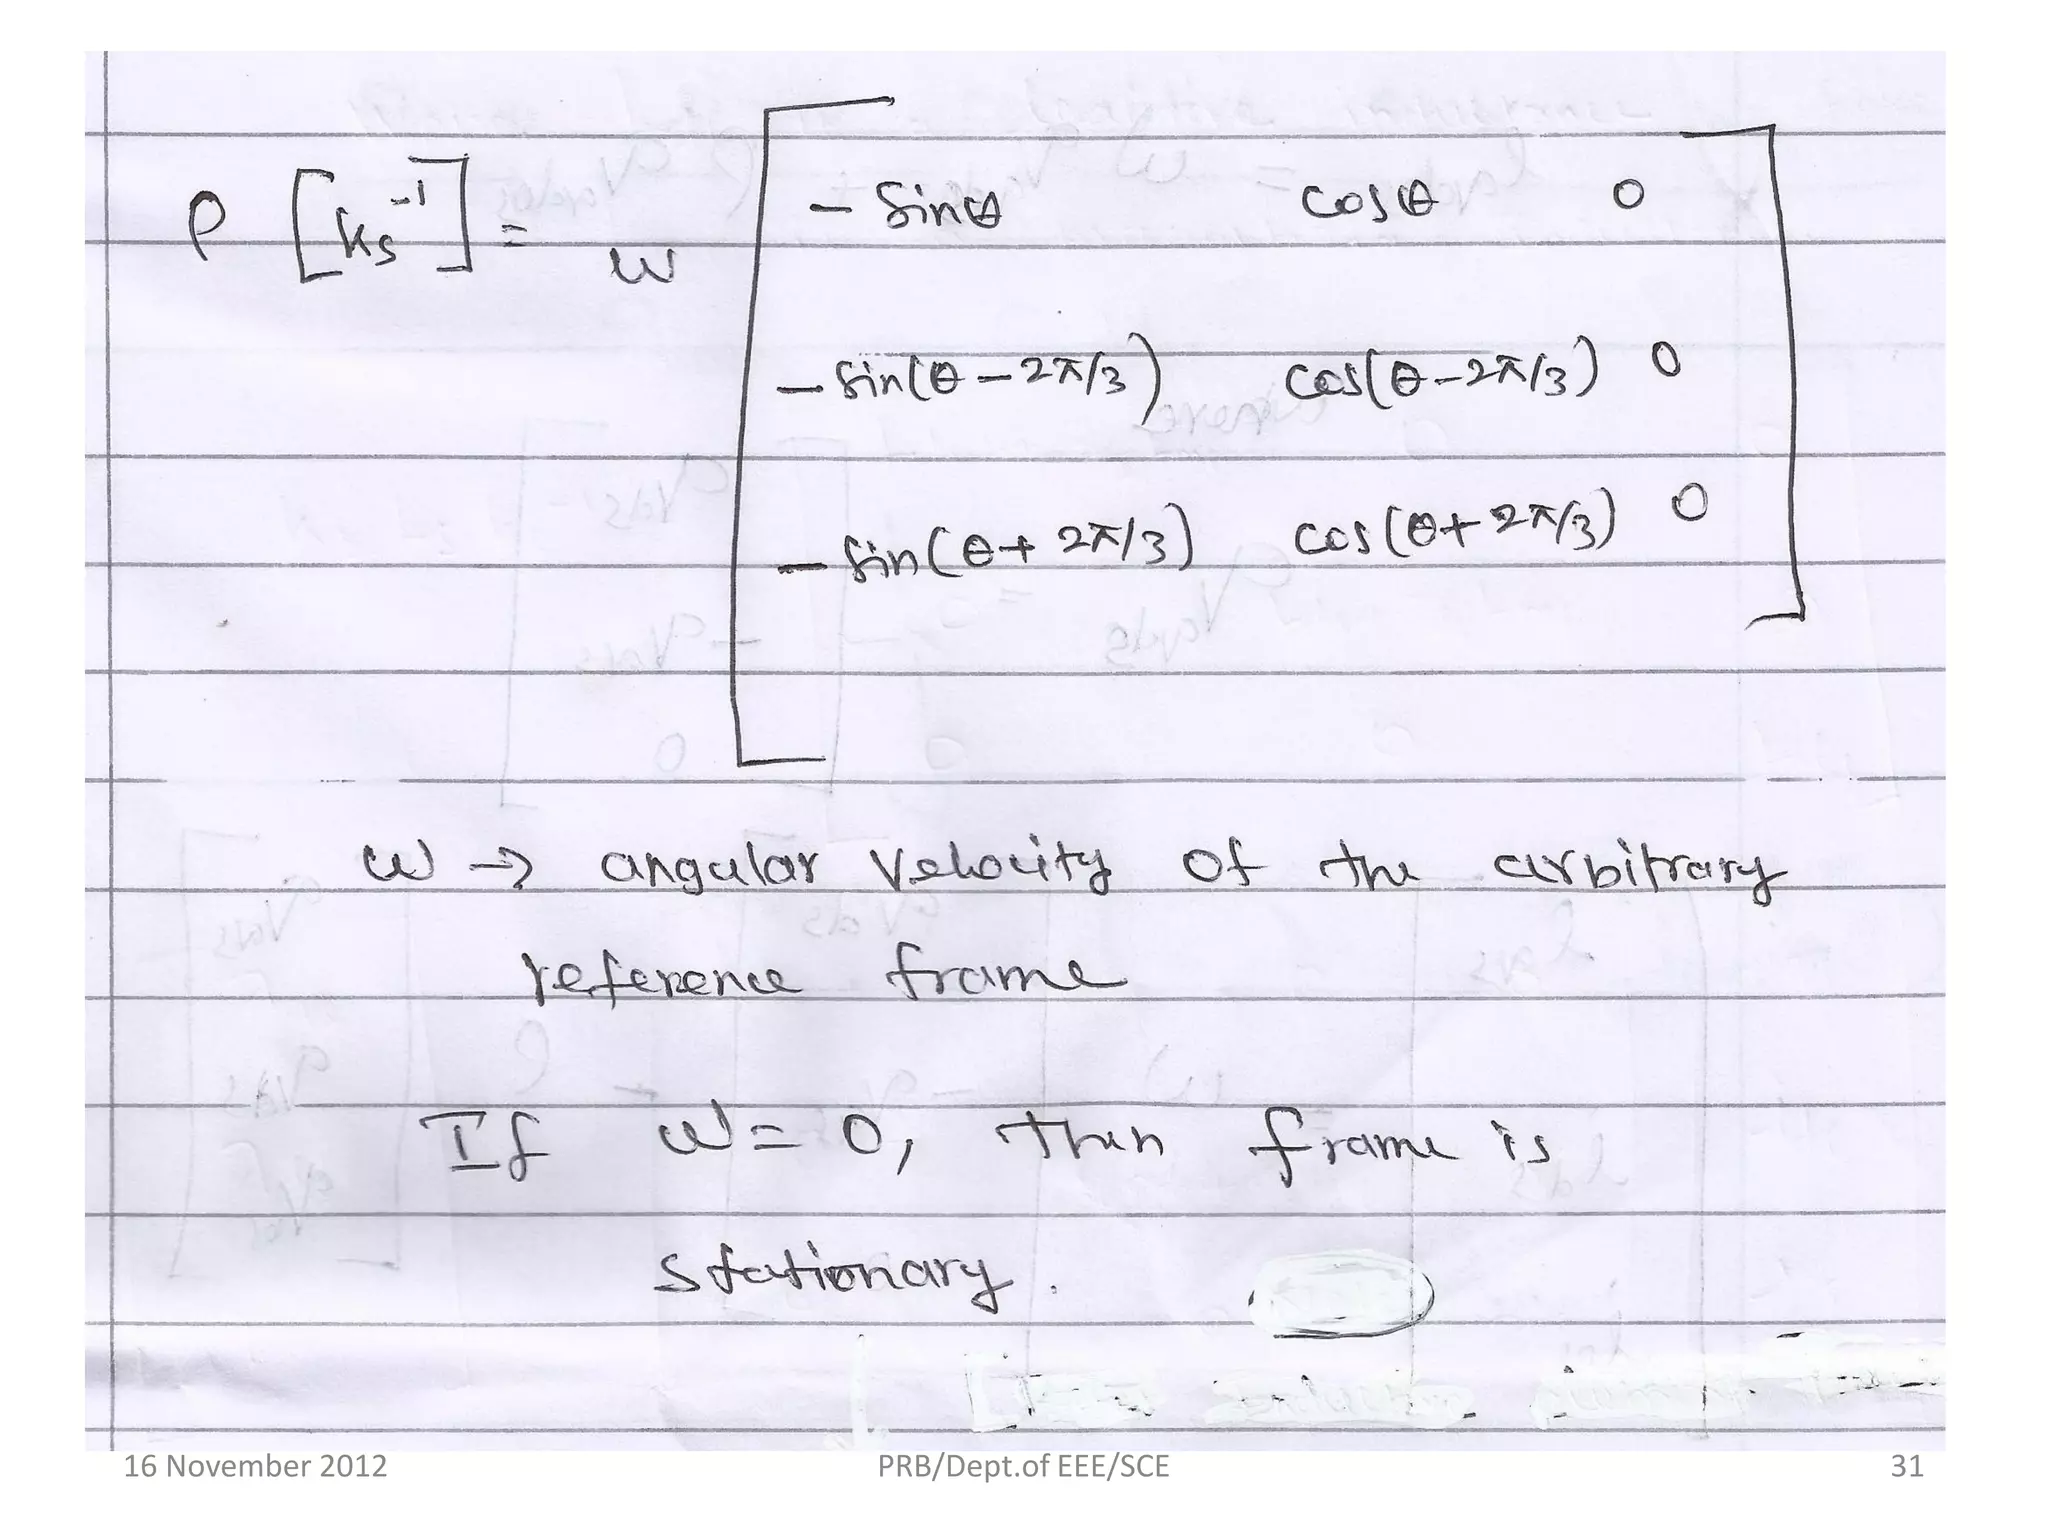 P [Ks⁻¹] = ω [ - Sinθ cosθ 0
- sin(θ - 2π/3) cos(θ - 2π/3) 0
- sin(θ + 2π/3) cos(θ + 2π/3) 0 ]
ω → angular velocity of the arbitrary
reference frame
If ω = 0, then frame is
stationary.
16 November 2012 PRB/Dept.of EEE/SCE 31